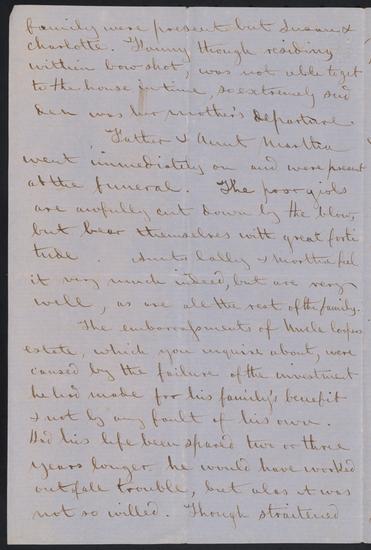 family were present but Susan &
Charlotte. Fanny though residing
within bow shot, was not able to get
to the house in time, so extremely sud
den was her mother's departure.
Father & Aunt Martha
went immediately on and were present
at the funeral. The poor girls
are awfully cut down by the blow,
but bear themselves with great forti
tude. Aunts Calley & Martha feel
it very much indeed, but are very
well, as are all the rest of the family.
The embarrassments of Uncle
estate, which you inquire about, were
caused by the failure of the investment
he had made for his family's benefit
& not by any fault of his own.
Had his life been spared two or three
years longer he would have worked
out of all trouble, but alas it was
not so willed. Though straitened